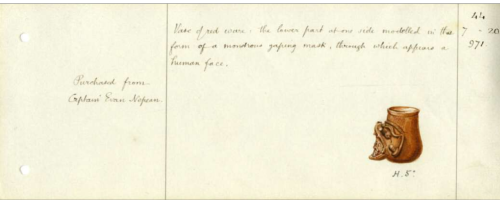 44
7 - 20
971.
Vase of red ware. the lower part at one side modelled in the
form of a monstrous gaping mask, through which appears a
human face.
Purchased from
Captain Evan Nepean
H. 5"